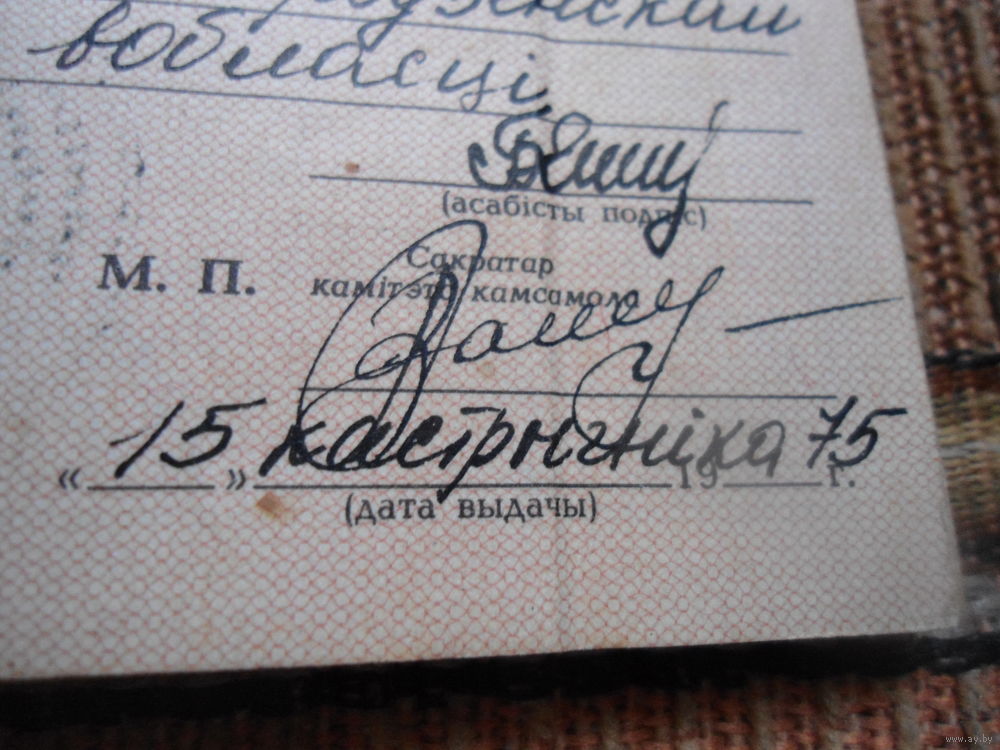 вобласці
(асабісты подпіс)
М. П.
Сакратар
камітэта камсамола
«15» кастрычніка 1975 г.
(дата выдачы)
www.ay.by